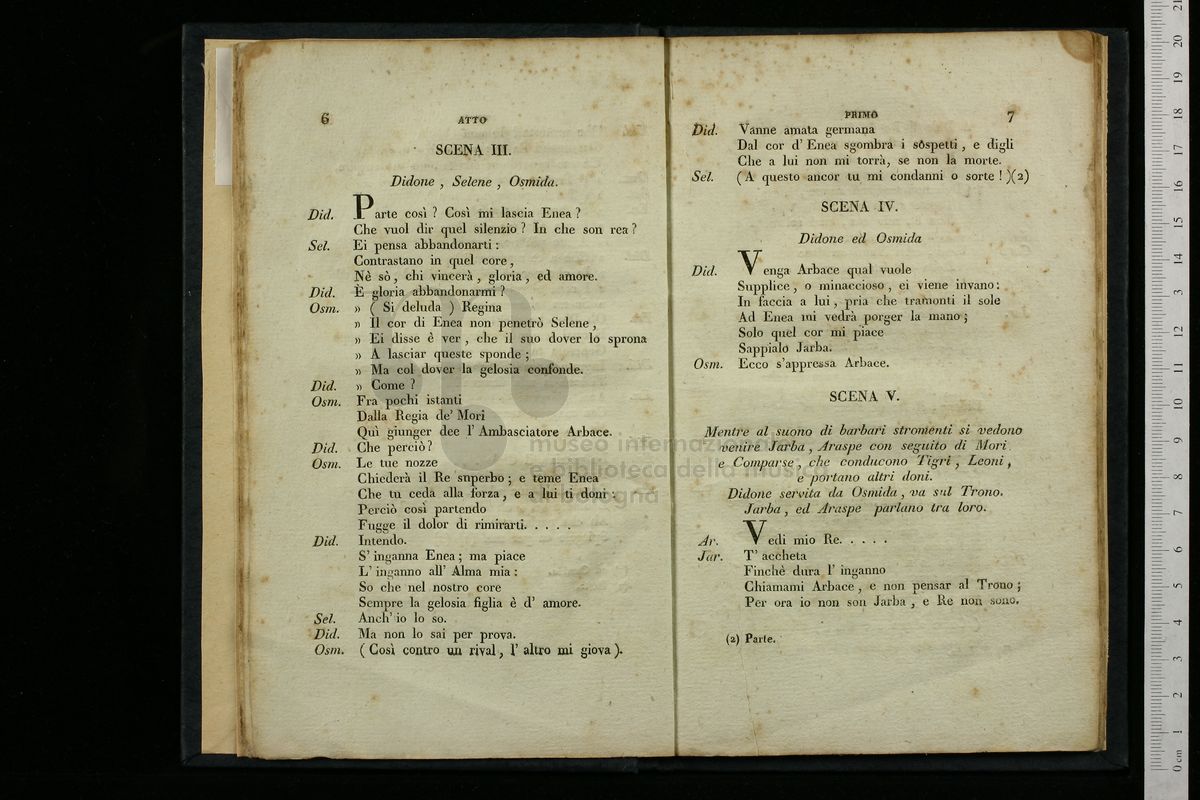 6
ATTO
SCENA III.
Didone , Selene , Osmida.
Did. Parte così ? Così mi lascia Enea ?
Che vuol dir quel silenzio ? In che son rea ?
Sel. Ei pensa abbandonarti :
Contrastano in quel core ,
Nè sò , chi vincerà , gloria , ed amore.
Did. È gloria abbandonarmi ?
Osm. » ( Si deluda ) Regina
» Il cor di Enea non penetrò Selene ,
» Ei disse è ver , che il suo dover lo sprona
» A lasciar queste sponde ;
» Ma col dover la gelosia confonde.
Did. » Come ?
Osm. Fra pochi istanti
Dalla Regia de' Mori
Quì giunger dee l' Ambasciatore Arbace.
Did. Che perciò ?
Osm. Le tue nozze
Chiederà il Re superbo ; e teme Enea
Che tu ceda alla forza , e a lui ti doni :
Perciò così partendo
Fugge il dolor di rimirarti. . . . .
Did. Intendo.
S' inganna Enea ; ma piace
L' inganno all' Alma mia :
So che nel nostro core
Sempre la gelosia figlia è d' amore.
Sel. Anch' io lo so.
Did. Ma non lo sai per prova.
Osm. ( Così contro un rival , l' altro mi giova ).
PRIMO
7
Did. Vanne amata germana
Dal cor d' Enea sgombra i sospetti , e digli
Che a lui non mi torrà, se non la morte.
Sel. ( A questo ancor tu mi condanni o sorte ! )(2)
SCENA IV.
Didone ed Osmida
Did. Venga Arbace qual vuole
Supplice , o minaccioso , ei viene invano :
In faccia a lui , pria che tramonti il sole
Ad Enea mi vedrà porger la mano ;
Solo quel cor mi piace
Sappialo Jarba.
Osm. Ecco s'appressa Arbace.
SCENA V.
Mentre al suono di barbari stromenti si vedono
venire Jarba , Araspe con seguito di Mori
e Comparse , che conducono Tigri , Leoni ,
e portano altri doni.
Didone servita da Osmida , va sul Trono.
Jarba , ed Araspe parlano tra loro.
Ar. Vedi mio Re. . . . .
Jar. T' accheta
Finchè dura l' inganno
Chiamami Arbace , e non pensar al Trono ;
Per ora io non son Jarba , e Re non sono.
(2) Parte.
museo internazionale
e biblioteca della musica
di bologna
0 cm 1 2 3 4 5 6 7 8 9 10 11 12 13 14 15 16 17 18 19 20 21